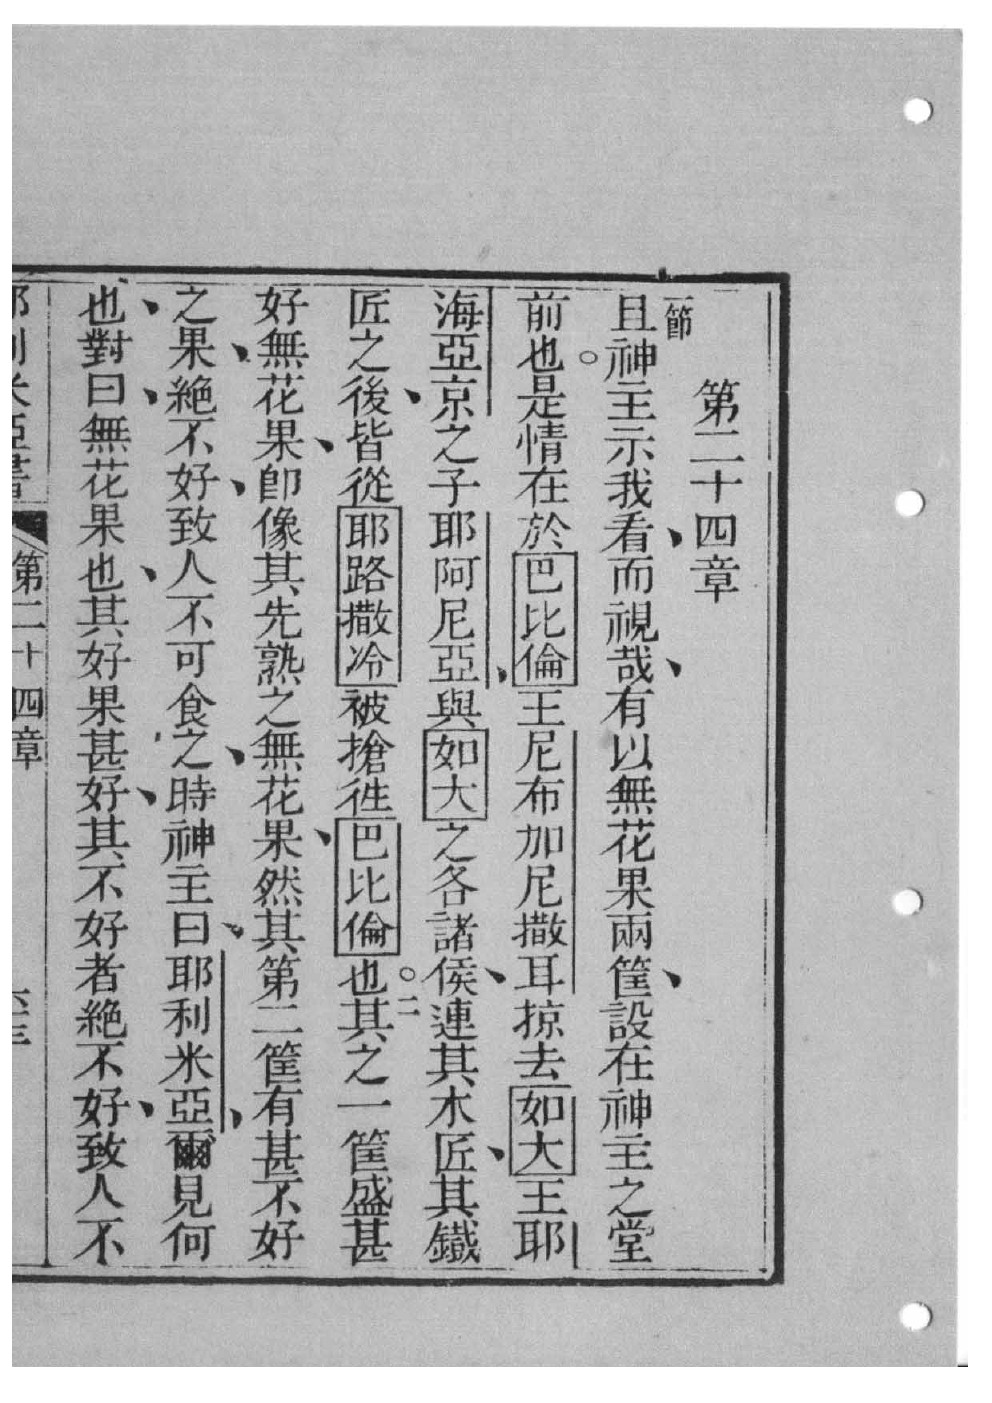 第二十四章
一節
且神主示我看、而視哉、有以無花果兩筐、設在神主之堂
前也。是情在於巴比倫王尼布加尼撒耳掠去如大王耶
海亞京之子耶阿尼亞、與如大之各諸侯、連其木匠、其鐵
匠之後、皆從耶路撒冷被搶徃巴比倫也。二其之一筐盛甚
好無花果、卽像其先熟之無花果、然其第二筐有甚不好
之果、絕不好、致人不可食之、時神主曰、耶利米亞、爾見何
也、對曰、無花果也、其好果甚好、其不好者絕不好、致人不
耶利米亞書 第二十四章